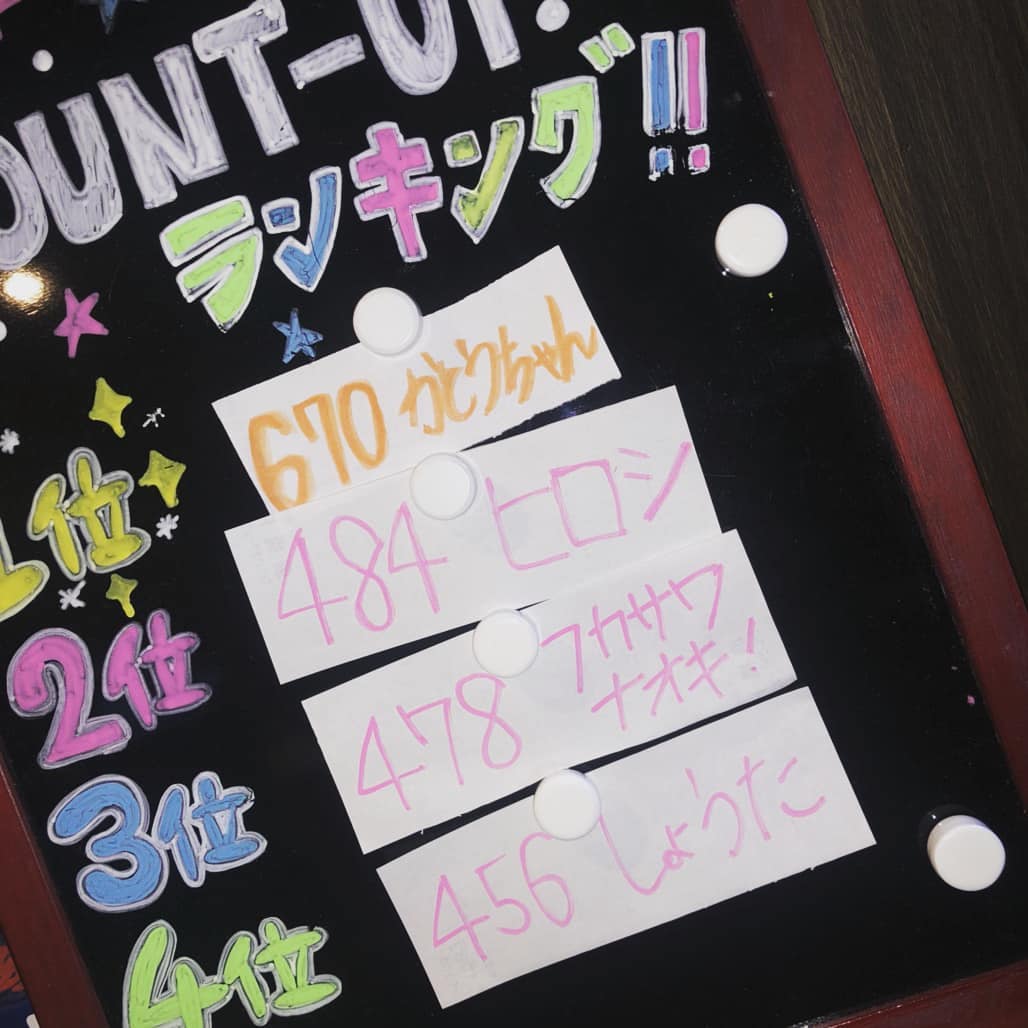 OUNT-UP
ランキング!!
1位
670 かとうちゃん
2位
484 ヒロシ
3位
478 フカサワ
ナオキ!
4位
456 しょうた